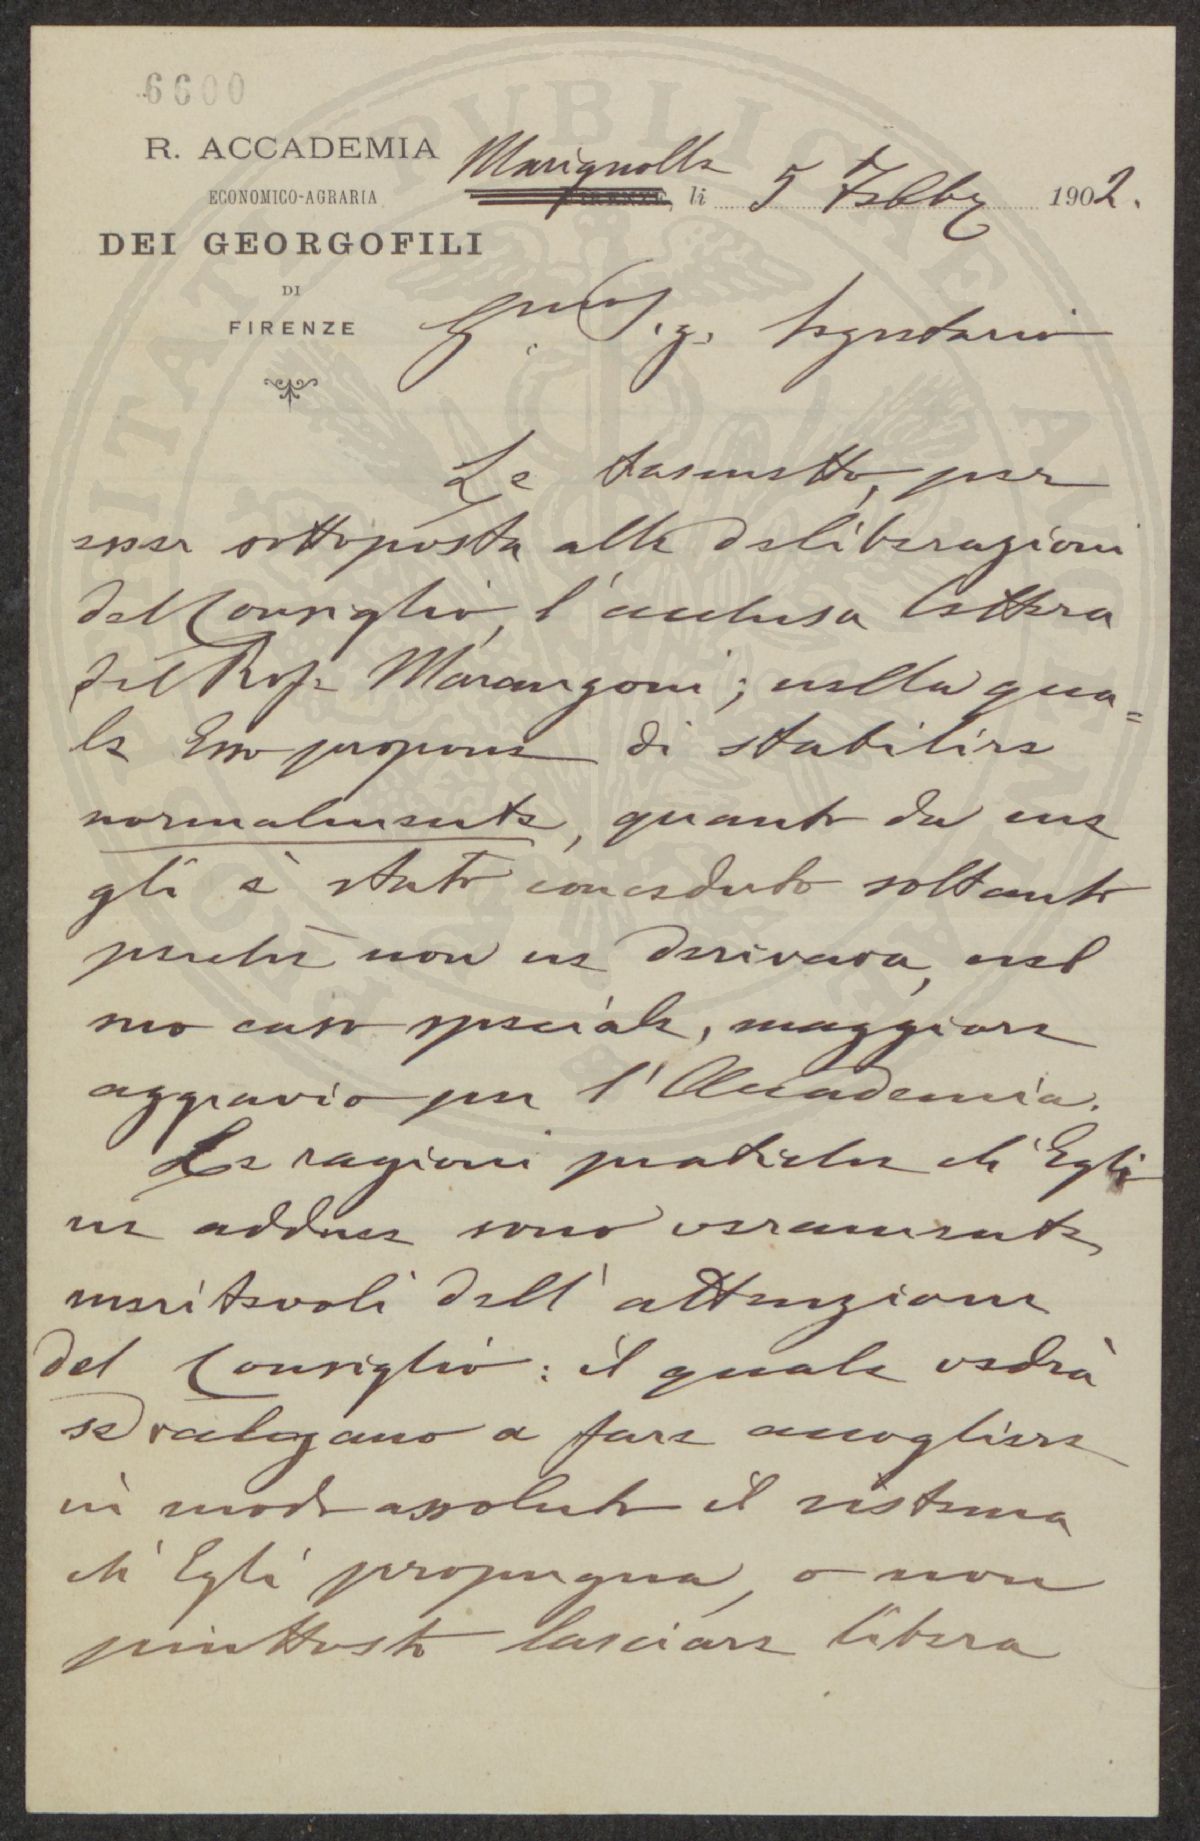 6600
R. ACCADEMIA
ECONOMICO-AGRARIA
DEI GEORGOFILI
DI
FIRENZE
Marignolle
FIRENZE, li 5 Febb 1902.
Sig. Segretario
Le trasmetto, per
esser sottoposta alle deliberazioni
del Consiglio, l'acclusa lettera
del Prof. Marangoni; nella qua=
le Esso propone di stabilire
normalmente, quanto da me
gli è stato conceduto soltanto
perchè non ne derivava, nel
suo caso speciale, maggiore
aggravio per l'Accademia.
Le ragioni pratiche ch'Egli
ne adduce sono veramente
meritevoli dell'attenzione
del Consiglio: il quale vedrà
se valgano a fare accogliere
in modo assoluto il sistema
ch'Egli propugna, o non
piuttosto lasciare libera
PUBLICAE